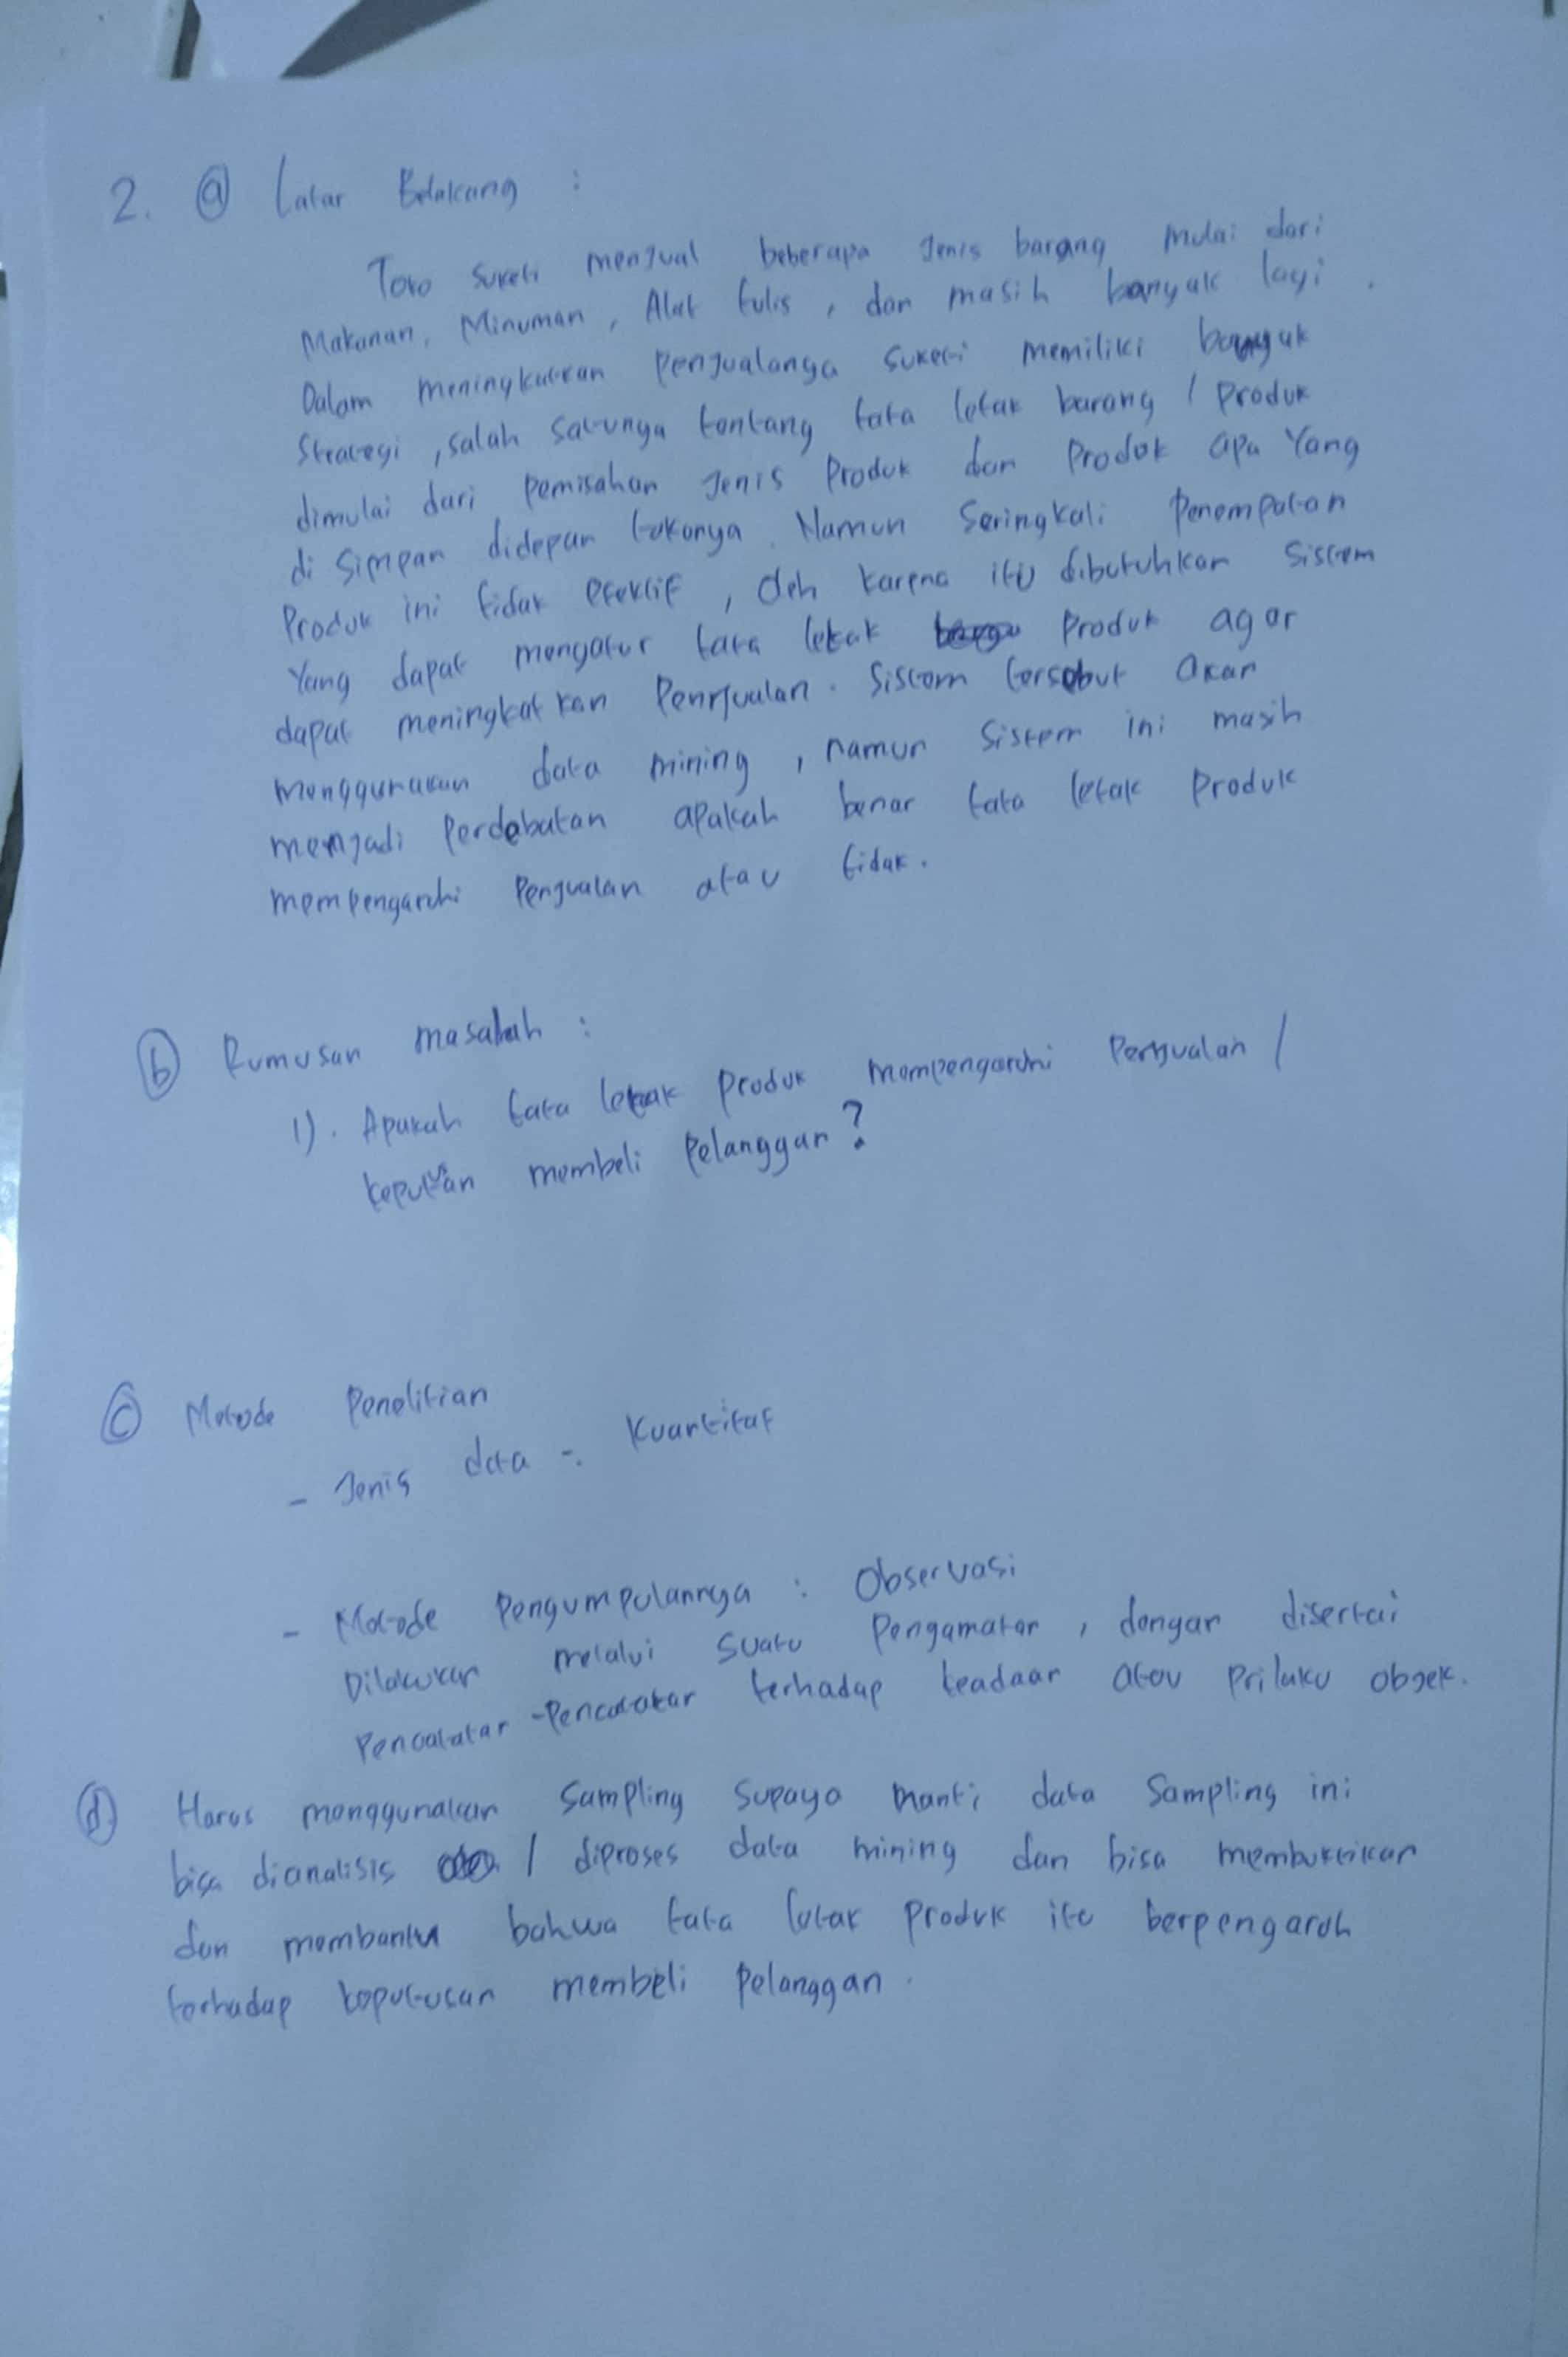 2. ⓐ Latar Belakang :
Toko Suketi menjual beberapa Jenis barang mulai dari
Makanan, Minuman, Alat tulis, dan masih banyak lagi.
Dalam meningkatkan Penjualanga Suketi memiliki banyak
Strategi, salah satunya tentang tata letak barang / Produk
dimulai dari pemisahan Jenis Produk dan Produk apa Yang
di Simpan didepan tokonya. Namun Seringkali Penempatan
Produk ini tidak efektif, oleh karena itu dibutuhkan Sistem
Yang dapat mengatur tata letak Produk agar
dapat meningkatkan Penjualan. Sistem tersebut akan
menggunakan data mining, namun Sistem ini masih
menjadi Perdebatan apakah benar tata letak Produk
mempengaruhi Penjualan atau tidak.
ⓑ Rumusan masalah :
1). Apakah tata letak Produk mempengaruhi Penjualan /
keputusan membeli Pelanggan?
ⓒ Metode Penelitian
- Jenis data : Kuantitaf
- Metode Pengumpulannya : Observasi
Dilakukan melalui Suatu Pengamatan, dengan disertai
Pencatatan-Pencatatan terhadap keadaan atau Prilaku objek.
ⓓ Harus menggunakan Sampling Supaya nanti data Sampling ini
bisa dianalisis / diproses data mining dan bisa membuktikan
dan membantu bahwa tata letak Produk itu berpengaruh
terhadap keputusan membeli Pelanggan.